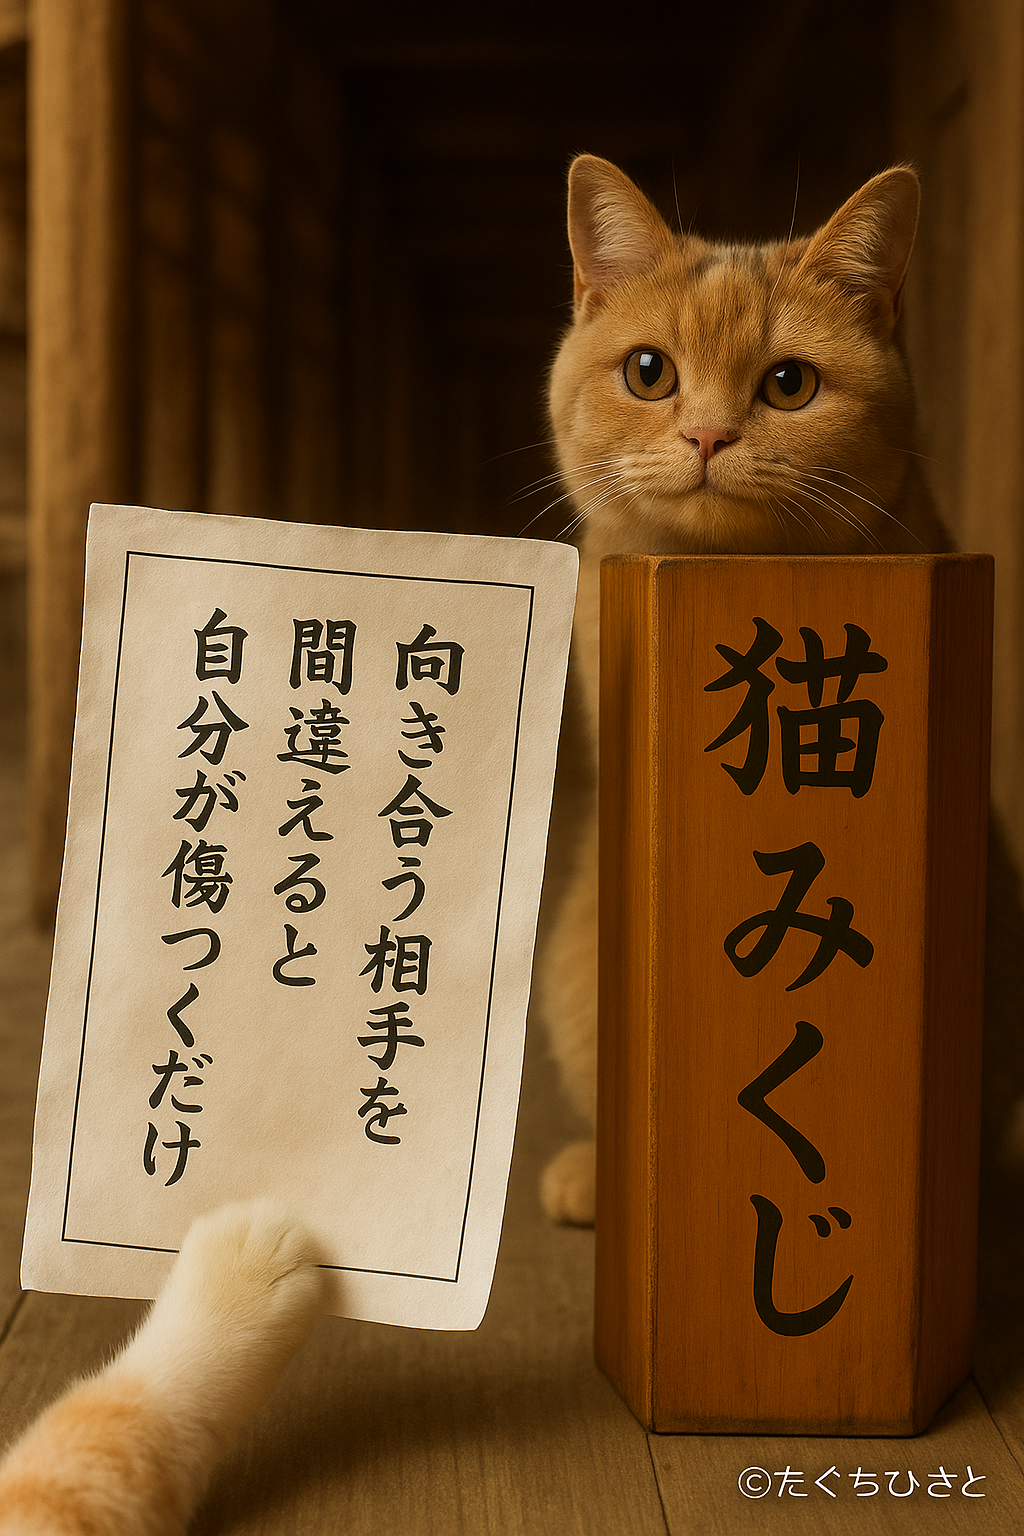 向き合う相手を
間違えると
自分が傷つくだけ
猫みくじ
©たぐちひさと